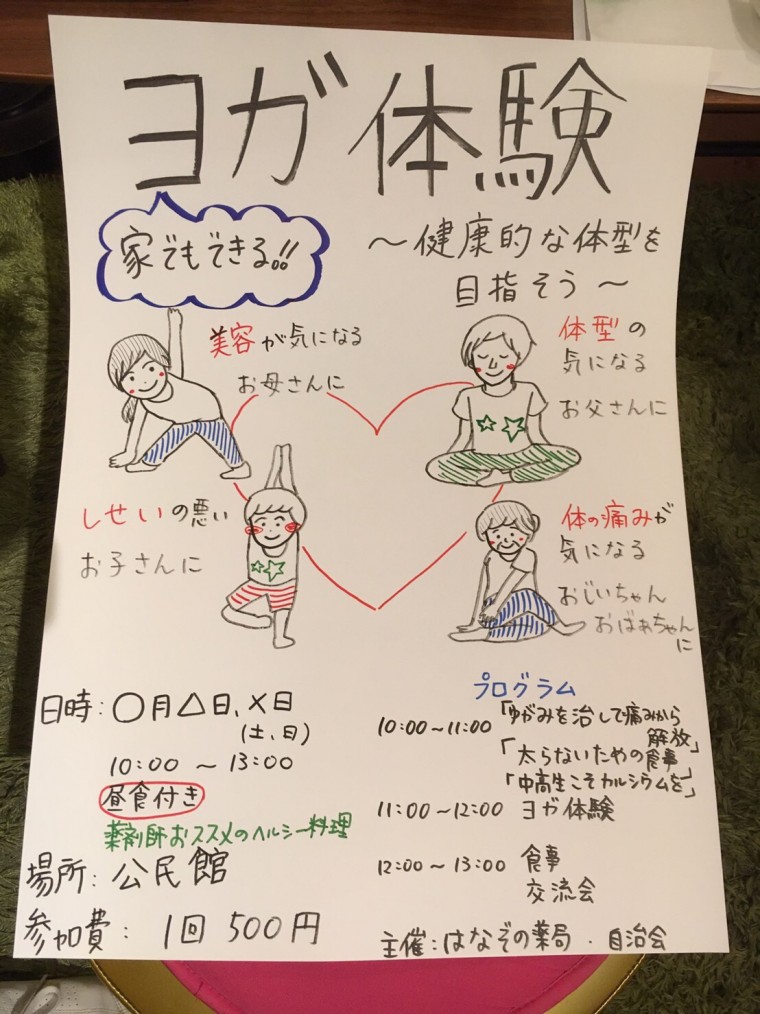 ヨガ体験
家でもできる!!
～健康的な体型を
目指そう～
美容が気になる
お母さんに
体型の
気になる
お父さんに
しせいの悪い
お子さんに
体の痛みが
気になる
おじいちゃん
おばあちゃん
に
日時:○月△日、×日
(土、日)
10:00～13:00
昼食付き
薬剤師おススメのヘルシー料理
場所:公民館
参加費:1回 500円
プログラム
10:00～11:00 「ゆがみを治して痛みから
解放」
「太らないための食事」
「中高生こそカルシウムを」
11:00～12:00 ヨガ体験
12:00～13:00 食事
交流会
主催:はなぞの薬局・自治会